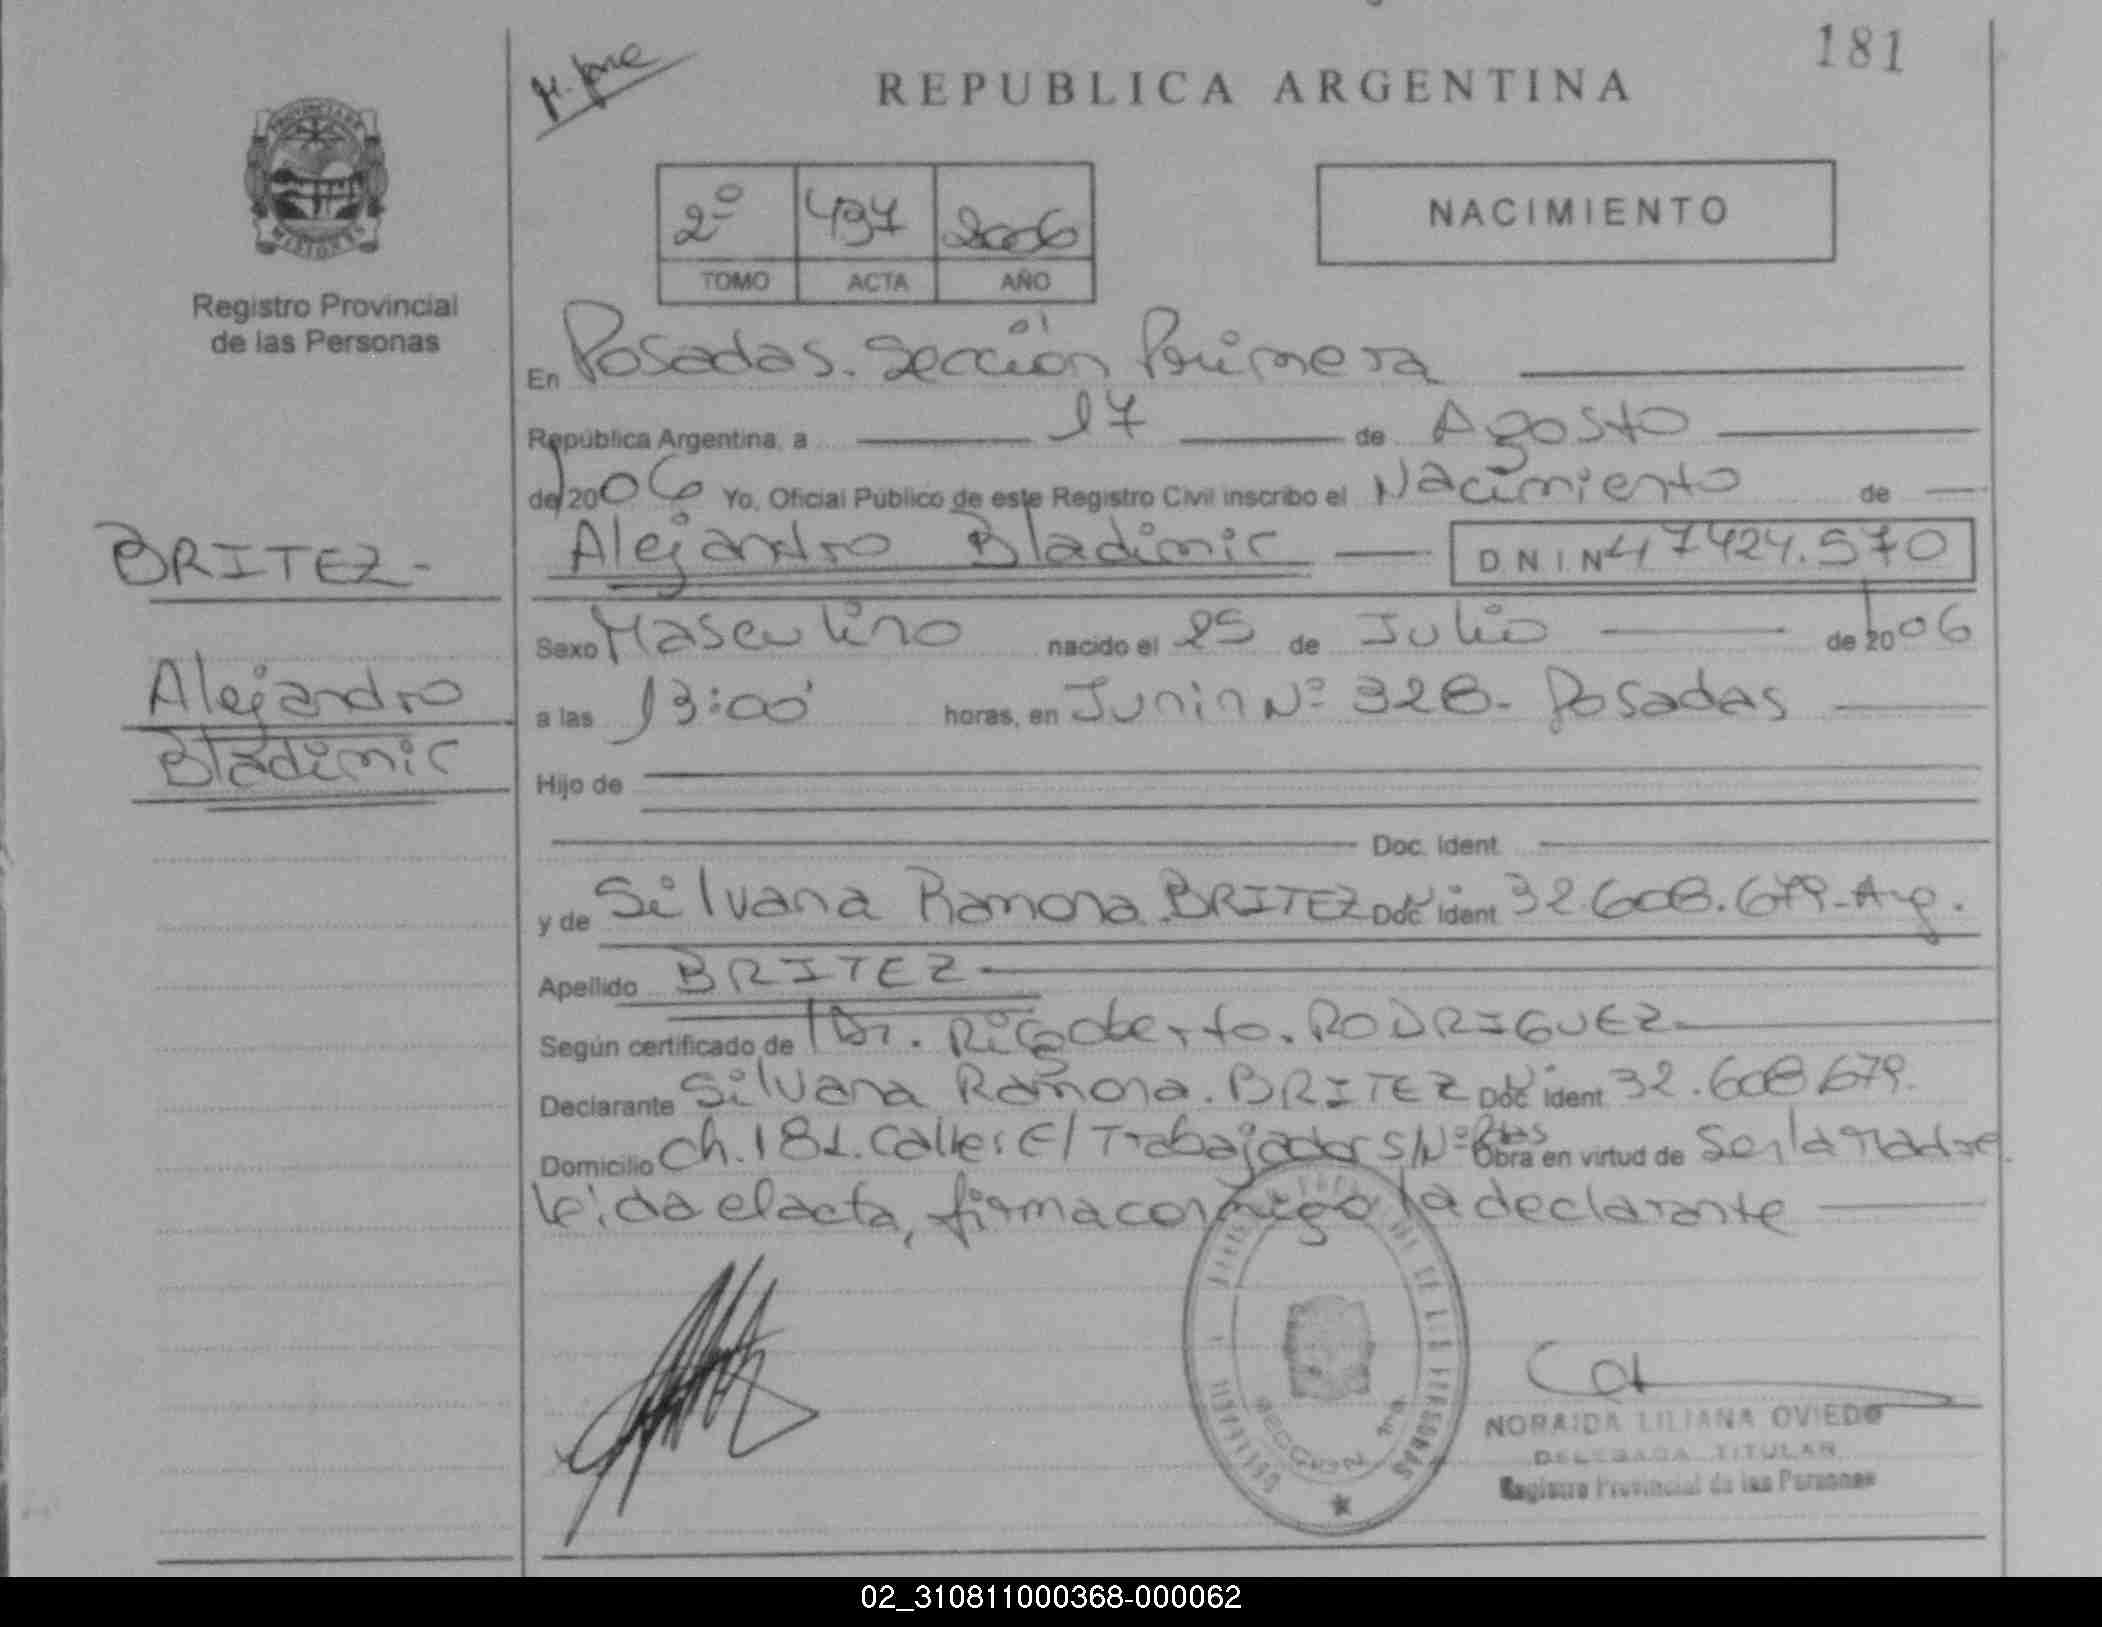 181
REPUBLICA ARGENTINA
Registro Provincial
de las Personas
2º 497 2006
TOMO ACTA AÑO
NACIMIENTO
En Posadas. Sección Primera
República Argentina, a 17 de Agosto
de 2006 Yo, Oficial Público de este Registro Civil inscribo el Nacimiento de
Alejandro Bladimir D N I Nº 47424.570
BRITEZ-
Alejandro
Bladimir
Sexo Masculino nacido el 25 de Julio de 2006
a las 13:00 horas, en Junin Nº 328- Posadas
Hijo de
Doc. Ident.
y de Silvana Ramona BRITEZ Doc Ident 32608.679-Arg.
Apellido BRITEZ
Según certificado de Dr. Rigoberto. RODRIGUEZ
Declarante Silvana Ramona. BRITEZ Doc ident 32.608.679.
Domicilio Ch.181. Calle: El Trabajador S/Nº Pdas Obra en virtud de Ser la Madre.
leida el acta, firma conmigo la declarante
SECCION 1ra
NORAIDA LILIANA OVIEDO
DELEGADA TITULAR
Registro Provincial de las Personas
02_310811000368-000062